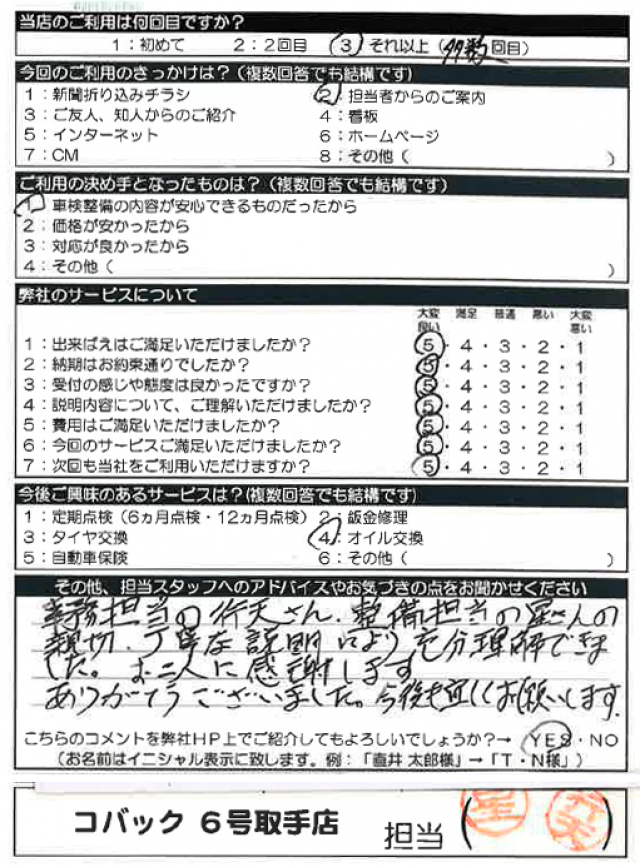 当店のご利用は何回目ですか？
1：初めて 2：2回目 3：それ以上（多数 回目）
今回のご利用のきっかけは？（複数回答でも結構です）
1：新聞折り込みチラシ 2：担当者からのご案内
3：ご友人、知人からのご紹介 4：看板
5：インターネット 6：ホームページ
7：CM 8：その他（ ）
ご利用の決め手となったものは？（複数回答でも結構です）
1：車検整備の内容が安心できるものだったから
2：価格が安かったから
3：対応が良かったから
4：その他（ ）
弊社のサービスについて
大変良い 満足 普通 悪い 大変悪い
1：出来ばえはご満足いただけましたか？ 5・4・3・2・1
2：納期はお約束通りでしたか？ 5・4・3・2・1
3：受付の感じや態度は良かったですか？ 5・4・3・2・1
4：説明内容について、ご理解いただけましたか？ 5・4・3・2・1
5：費用はご満足いただけましたか？ 5・4・3・2・1
6：今回のサービスご満足いただけましたか？ 5・4・3・2・1
7：次回も当社をご利用いただけますか？ 5・4・3・2・1
今後ご興味のあるサービスは？（複数回答でも結構です）
1：定期点検（6ヵ月点検・12ヵ月点検） 2：鈑金修理
3：タイヤ交換 4：オイル交換
5：自動車保険 6：その他（ ）
その他、担当スタッフへのアドバイスやお気づきの点をお聞かせください
事務担当の行天さん、整備担当の星さんの
親切、丁寧な説明により充分理解できま
した。お二人に感謝します
ありがとうございました。今後も宜しくお願いします。
こちらのコメントを弊社HP上でご紹介してもよろしいでしょうか？→ YES・NO
（お名前はイニシャル表示に致します。例：「直井 太郎様」→「T・N様」）
コバック 6号取手店 担当（ 星 行天 ）